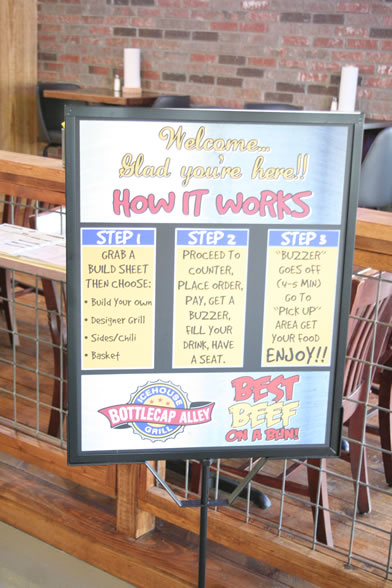 Welcome...
Glad you're here!!
HOW IT WORKS
STEP 1
GRAB A
BUILD SHEET
THEN CHOOSE:
• Build Your Own
• Designer Grill
• Sides/Chili
• Basket
STEP 2
PROCEED TO
COUNTER,
PLACE ORDER,
PAY, GET A
BUZZER,
FILL YOUR
DRINK, HAVE
A SEAT.
STEP 3
"BUZZER"
GOES OFF
(4-5 MIN)
GO TO
"PICK UP"
AREA GET
YOUR FOOD
ENJOY!!
ICEHOUSE
BOTTLECAP ALLEY
GRILL
BEST
BEEF
ON A BUN!